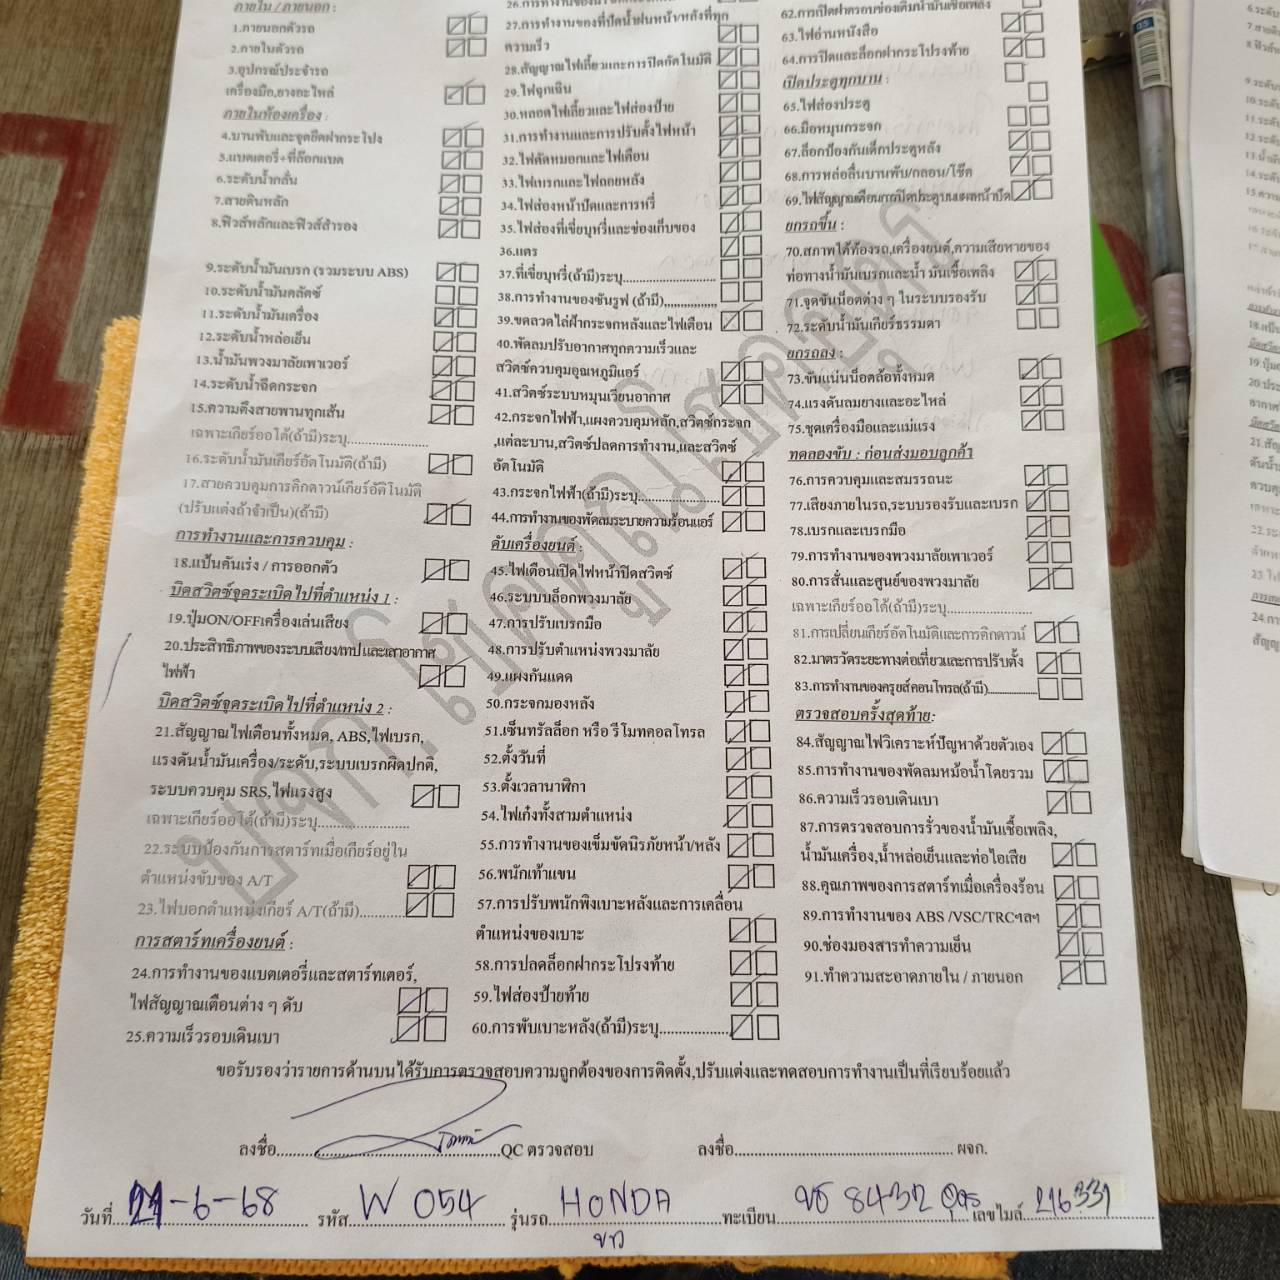 ภายใน / ภายนอก :
1.ภายนอกตัวรถ
2.ภายในตัวรถ
3.อุปกรณ์ประจำรถ
เครื่องมือ,ยางอะไหล่
ภายในห้องเครื่อง :
4.บานพับและจุดยึดฝากระโปง
5.แบตเตอรี่+ที่ล๊อกแบต
6.ระดับน้ำกลั่น
7.สายดินหลัก
8.ฟิวส์หลักและฟิวส์สำรอง
9.ระดับน้ำมันเบรก (รวมระบบ ABS)
10.ระดับน้ำมันคลัตซ์
11.ระดับน้ำมันเครื่อง
12.ระดับน้ำหล่อเย็น
13.น้ำมันพวงมาลัยเพาเวอร์
14.ระดับน้ำฉีดกระจก
15.ความตึงสายพานทุกเส้น
เฉพาะเกียร์ออโต้(ถ้ามี)ระบุ....................
16.ระดับน้ำมันเกียร์อัตโนมัติ(ถ้ามี)
17.สายควบคุมการคิกดาวน์เกียร์อัติโนมัติ
(ปรับแต่งถ้าจำเป็น)(ถ้ามี)
การทำงานและการควบคุม :
18.แป้นคันเร่ง / การออกตัว
บิดสวิตซ์จุดระเบิดไปที่ตำแหน่ง 1 :
19.ปุ่มON/OFFเครื่องเล่นเสียง
20.ประสิทธิภาพของระบบเสียง/เทป และเสาอากาศ
ไฟฟ้า
บิดสวิตซ์จุดระเบิดไปที่ตำแหน่ง 2 :
21.สัญญาณไฟเตือนทั้งหมด, ABS,ไฟเบรก,
แรงดันน้ำมันเครื่อง/ระดับ,ระบบเบรกผิดปกติ,
ระบบควบคุม SRS,ไฟแรงสูง
เฉพาะเกียร์ออโต้(ถ้ามี)ระบุ.......................
22.ระบบป้องกันการสตาร์ทเมื่อเกียร์อยู่ใน
ตำแหน่งขับของ A/T
23.ไฟบอกตำแหน่งเกียร์ A/T(ถ้ามี)............
การสตาร์ทเครื่องยนต์ :
24.การทำงานของแบตเตอรี่และสตาร์ทเตอร์,
ไฟสัญญาณเตือนต่าง ๆ ดับ
25.ความเร็วรอบเดินเบา
27.การทำงานของที่ปัดน้ำฝนหน้า/หลังที่ทุก
ความเร็ว
28.สัญญาณไฟเลี้ยวและการปิดอัตโนมัติ
29.ไฟฉุกเฉิน
30.หลอดไฟเลี้ยวและไฟส่องป้าย
31.การทำงานและการปรับตั้งไฟหน้า
32.ไฟตัดหมอกและไฟเตือน
33.ไฟเบรกและไฟถอยหลัง
34.ไฟส่องหน้าปัดและการหรี่
35.ไฟส่องที่เขี่ยบุหรี่และช่องเก็บของ
36.แตร
37.ที่เขี่ยบุหรี่(ถ้ามี)ระบุ.......................
38.การทำงานของซันรูฟ (ถ้ามี)...............
39.ขดลวดไล่ฝ้ากระจกหลังและไฟเตือน
40.พัดลมปรับอากาศทุกความเร็วและ
สวิตซ์ควบคุมอุณหภูมิแอร์
41.สวิตซ์ระบบหมุนเวียนอากาศ
42.กระจกไฟฟ้า,แผงควบคุมหลัก,สวิตซ์กระจก
,แต่ละบาน,สวิตซ์ปลดการทำงาน,และสวิตซ์
อัตโนมัติ
43.กระจกไฟฟ้า(ถ้ามี)ระบุ....................
44.การทำงานของพัดลมระบายความร้อนแอร์
ดับเครื่องยนต์ :
45.ไฟเตือนเปิดไฟหน้าปิดสวิตซ์
46.ระบบบล็อกพวงมาลัย
47.การปรับเบรกมือ
48.การปรับตำแหน่งพวงมาลัย
49.แผงกันแดด
50.กระจกมองหลัง
51.เซ็นทรัลล็อก หรือ รีโมทคอลโทรล
52.ตั้งวันที่
53.ตั้งเวลานาฬิกา
54.ไฟเก๋งทั้งสามตำแหน่ง
55.การทำงานของเข็มขัดนิรภัยหน้า/หลัง
56.พนักเท้าแขน
57.การปรับพนักพิงเบาะหลังและการเคลื่อน
ตำแหน่งของเบาะ
58.การปลดล็อกฝากระโปรงท้าย
59.ไฟส่องป้ายท้าย
60.การพับเบาะหลัง(ถ้ามี)ระบุ................
62.การเปิดฝาครอบช่องเติมน้ำมันเชื้อเพลิง
63.ไฟอ่านหนังสือ
64.การปิดและล็อกฝากระโปรงท้าย
เปิดประตูทุกบาน :
65.ไฟส่องประตู
66.มือหมุนกระจก
67.ล็อกป้องกันเด็กประตูหลัง
68.การหล่อลื่นบานพับ/กลอน/โช๊ต
69.ไฟสัญญาณเตือนการปิดประตูบนแผงหน้าปัด
ยกรถขึ้น :
70.สภาพใต้ท้องรถ,เครื่องยนต์,ความเสียหายของ
ท่อทางน้ำมันเบรกและน้ำมันเชื้อเพลิง
71.จุดขันน็อตต่าง ๆ ในระบบรองรับ
72.ระดับน้ำมันเกียร์ธรรมดา
ยกรถลง :
73.ขันแน่นน็อตล้อทั้งหมด
74.แรงดันลมยางและอะไหล่
75.ชุดเครื่องมือและแม่แรง
ทดลองขับ : ก่อนส่งมอบลูกค้า
76.การควบคุมและสมรรถนะ
77.เสียงภายในรถ,ระบบรองรับและเบรก
78.เบรกและเบรกมือ
79.การทำงานของพวงมาลัยเพาเวอร์
80.การสั่นและศูนย์ของพวงมาลัย
เฉพาะเกียร์ออโต้(ถ้ามี)ระบุ.....................
81.การเปลี่ยนเกียร์อัตโนมัติและการคิกดาวน์
82.มาตรวัดระยะทางต่อเที่ยวและการปรับตั้ง
83.การทำงานของครุยส์คอนโทรล(ถ้ามี)............
ตรวจสอบครั้งสุดท้าย:
84.สัญญาณไฟวิเคราะห์ปัญหาด้วยตัวเอง
85.การทำงานของพัดลมหม้อน้ำโดยรวม
86.ความเร็วรอบเดินเบา
87.การตรวจสอบการรั่วของน้ำมันเชื้อเพลิง,
น้ำมันเครื่อง,น้ำหล่อเย็นและท่อไอเสีย
88.คุณภาพของการสตาร์ทเมื่อเครื่องร้อน
89.การทำงานของ ABS /VSC/TRCฯลฯ
90.ช่องมองสารทำความเย็น
91.ทำความสะอาดภายใน / ภายนอก
ขอรับรองว่ารายการด้านบนได้รับการตรวจสอบความถูกต้องของการติดตั้ง,ปรับแต่งและทดสอบการทำงานเป็นที่เรียบร้อยแล้ว
ลงชื่อ........................QC ตรวจสอบ ลงชื่อ........................ ผจก.
วันที่ 21-6-68 รหัส W 054 รุ่นรถ HONDA ทะเบียน 8432 เลขไมล์ 216331
ขาว